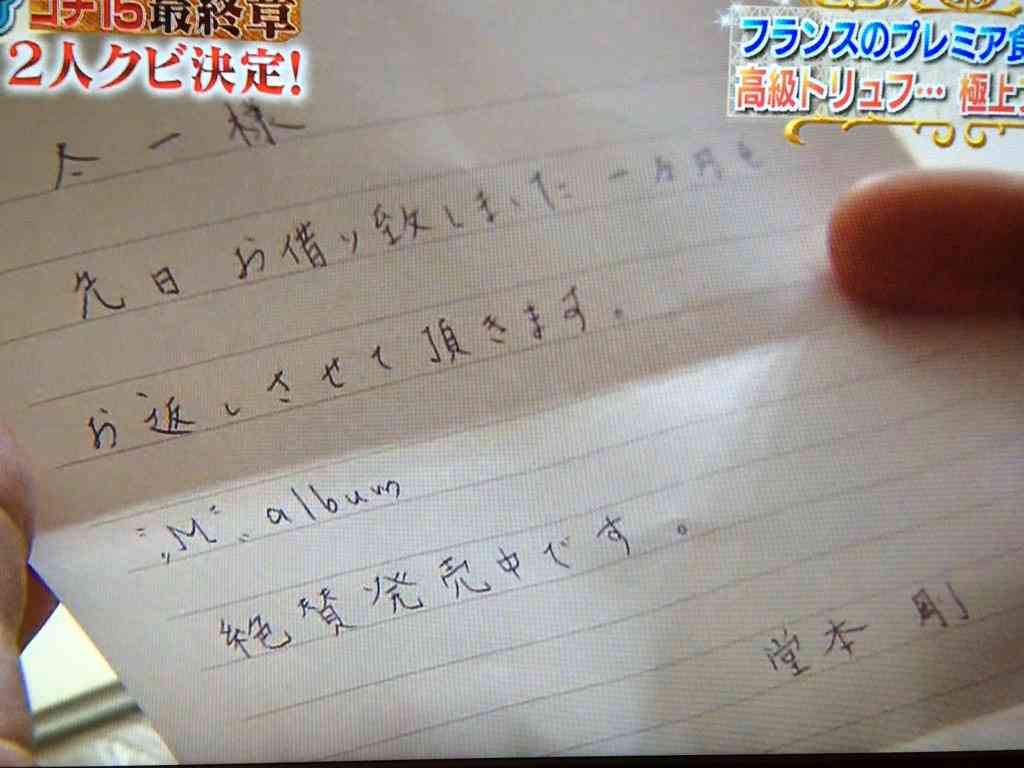 ゴチ15最終章
2人クビ決定!
フランスのプレミア食
高級トリュフ… 極上
太一様
先日お借り致しました一万円を
お返しさせて頂きます。
"M" album
絶賛発売中です。
堂本 剛